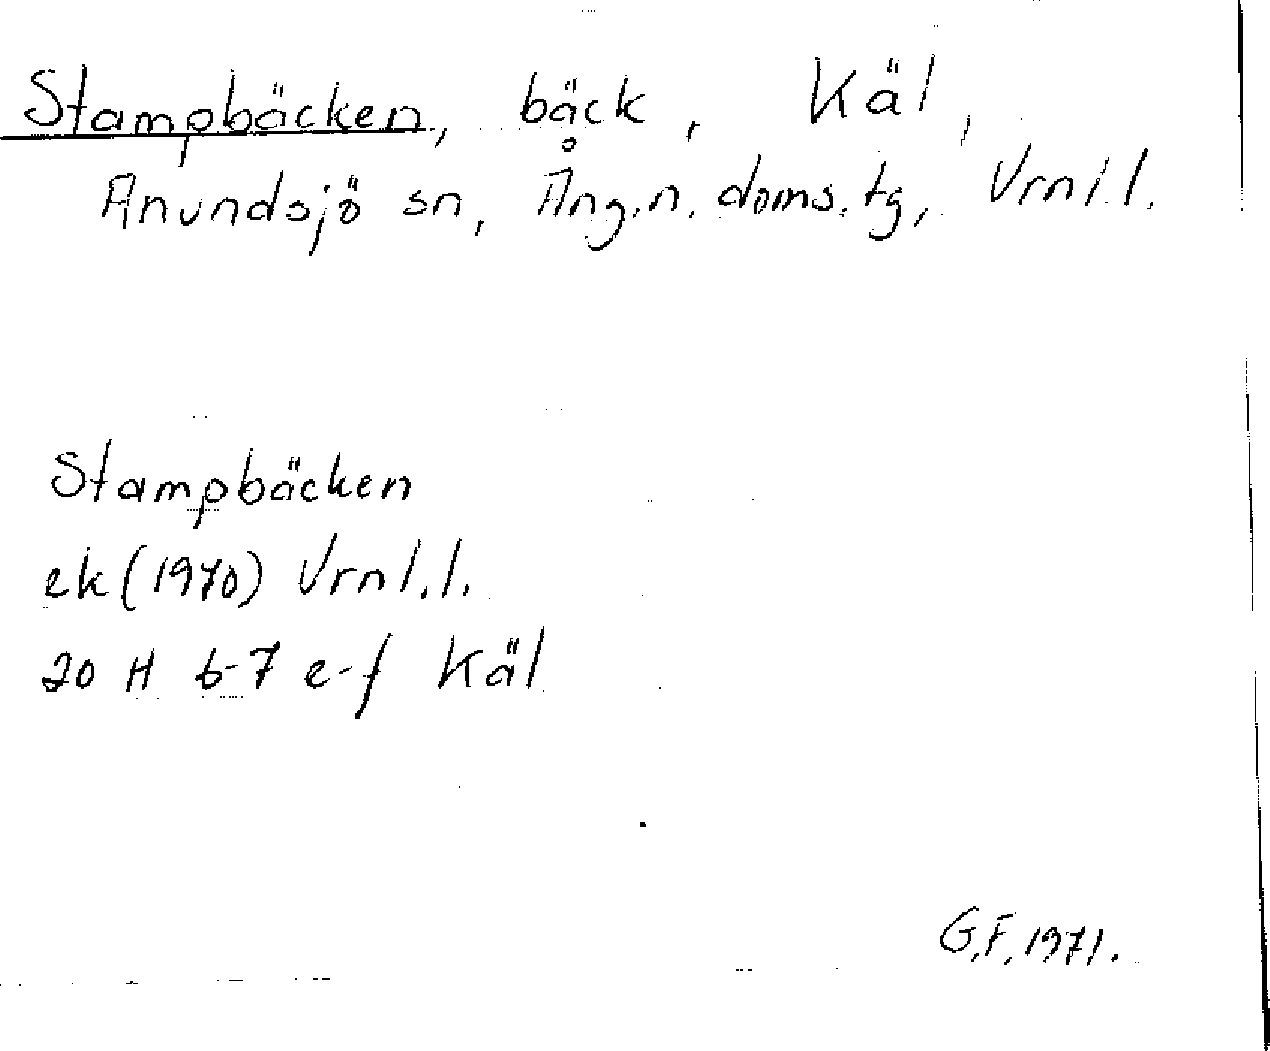 Stampbäcken, bäck, Käl,
Anundsjö sn, Ång.n. doms.tg, Vrnl.l.
Stampbäcken
ek (1970) Vrnl.l.
20 H 6-7 e-f Käl
G.F. 1971.